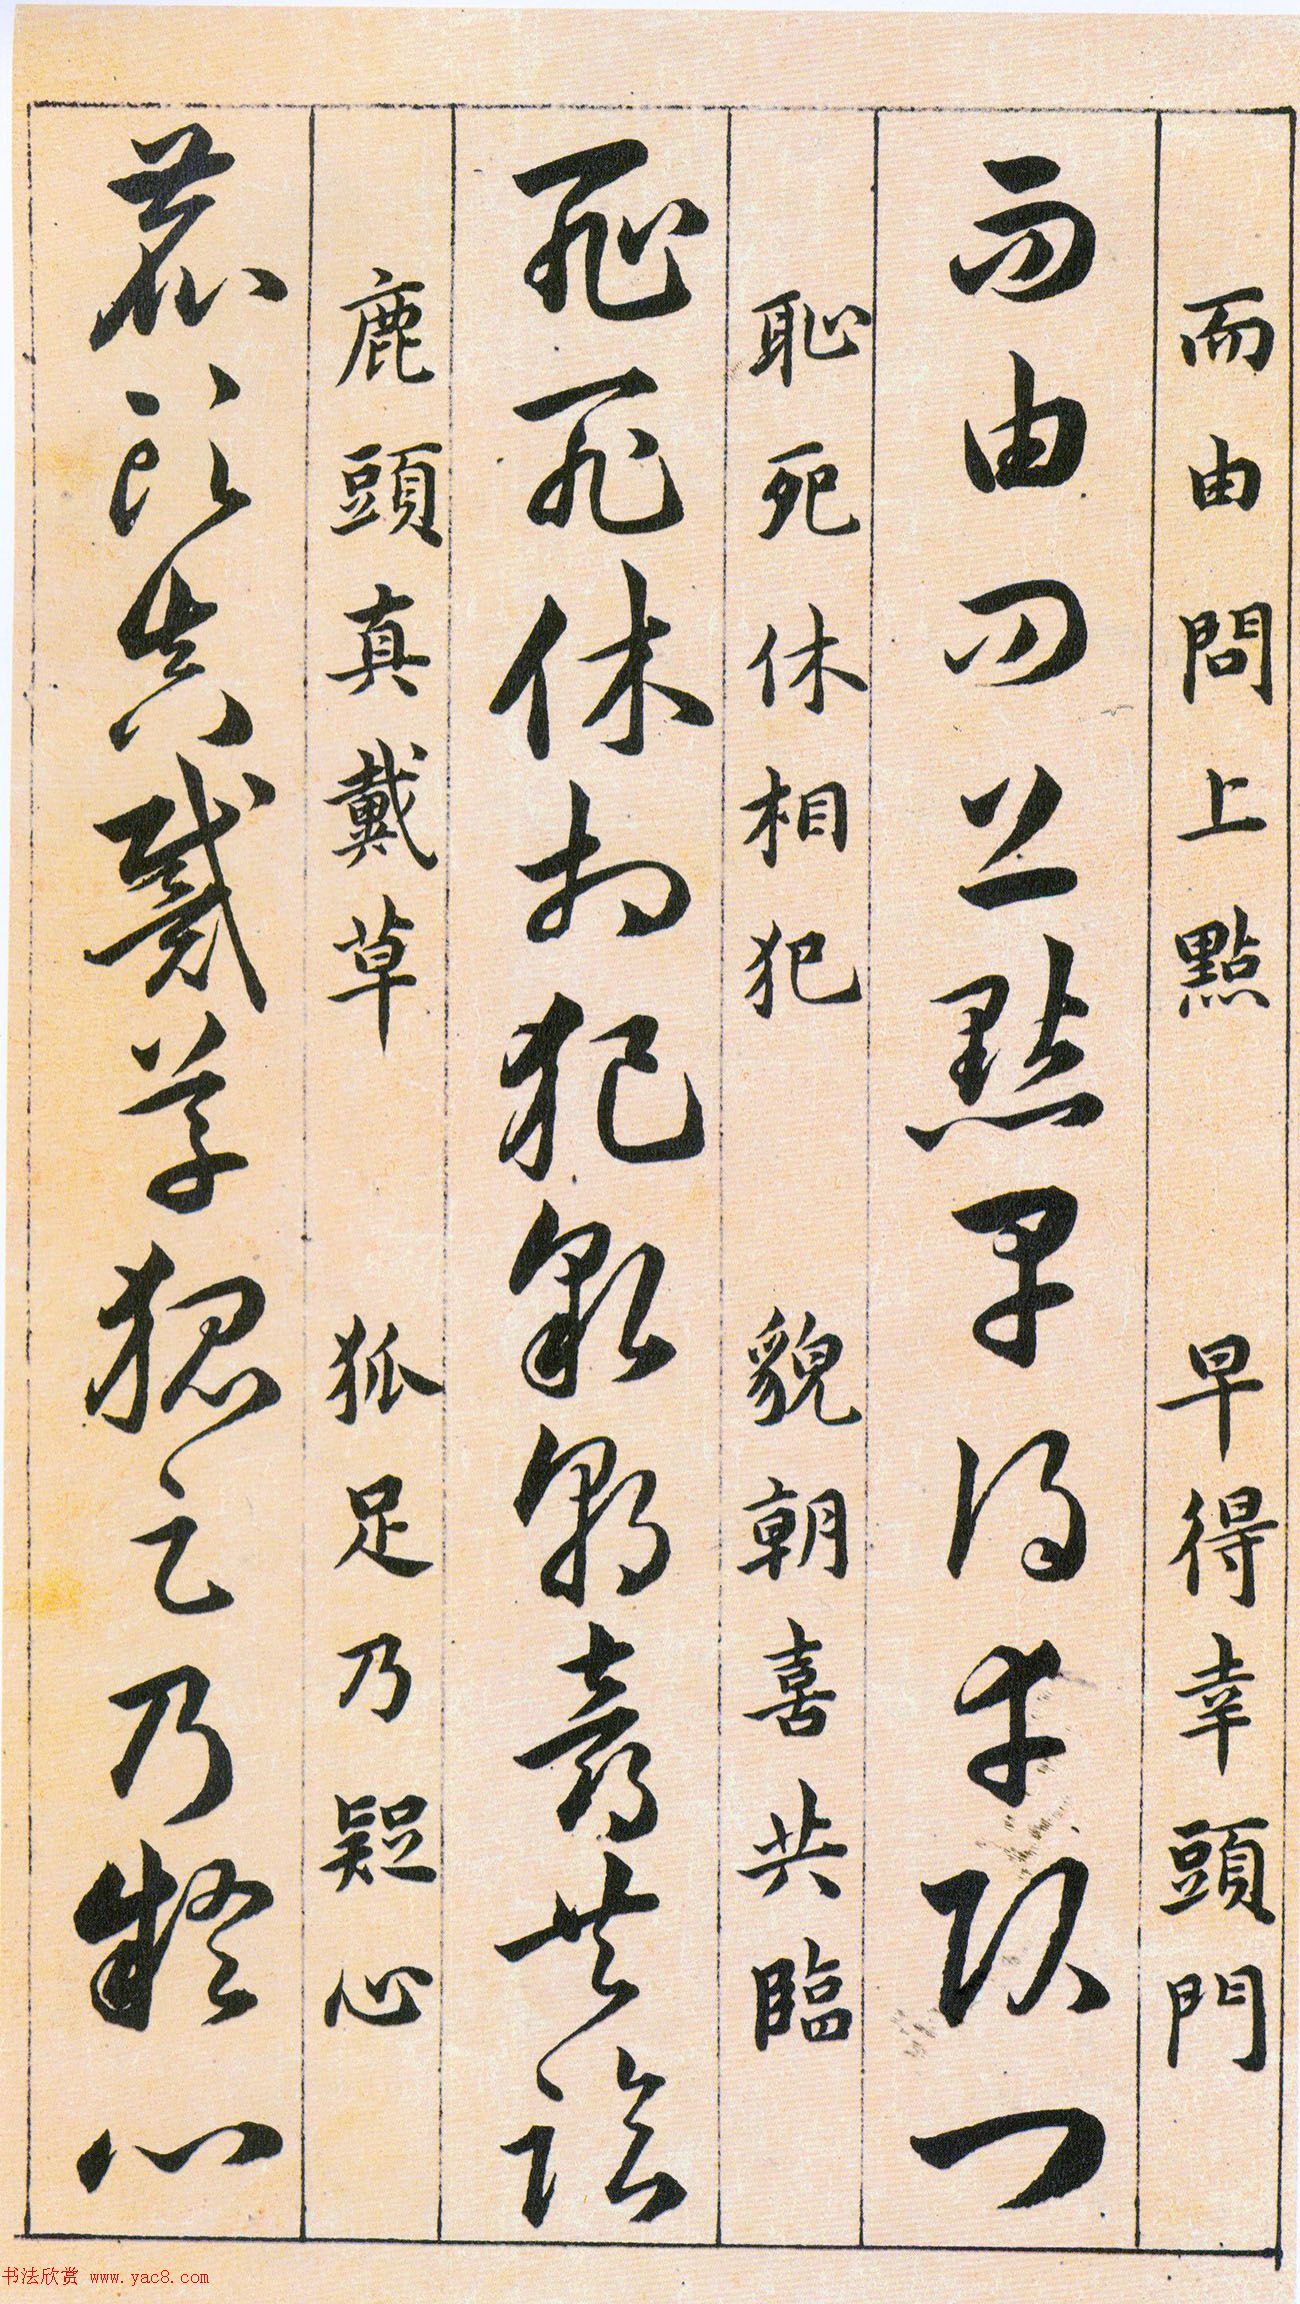 而由問上點 早得幸頭門
而由問上點早得幸頭門
恥死休相犯 貌朝喜共臨
恥死休相犯貌朝喜共臨
鹿頭真戴草 狐足乃疑心
鹿頭真戴草狐足乃疑心
书法欣赏 www.yac8.com